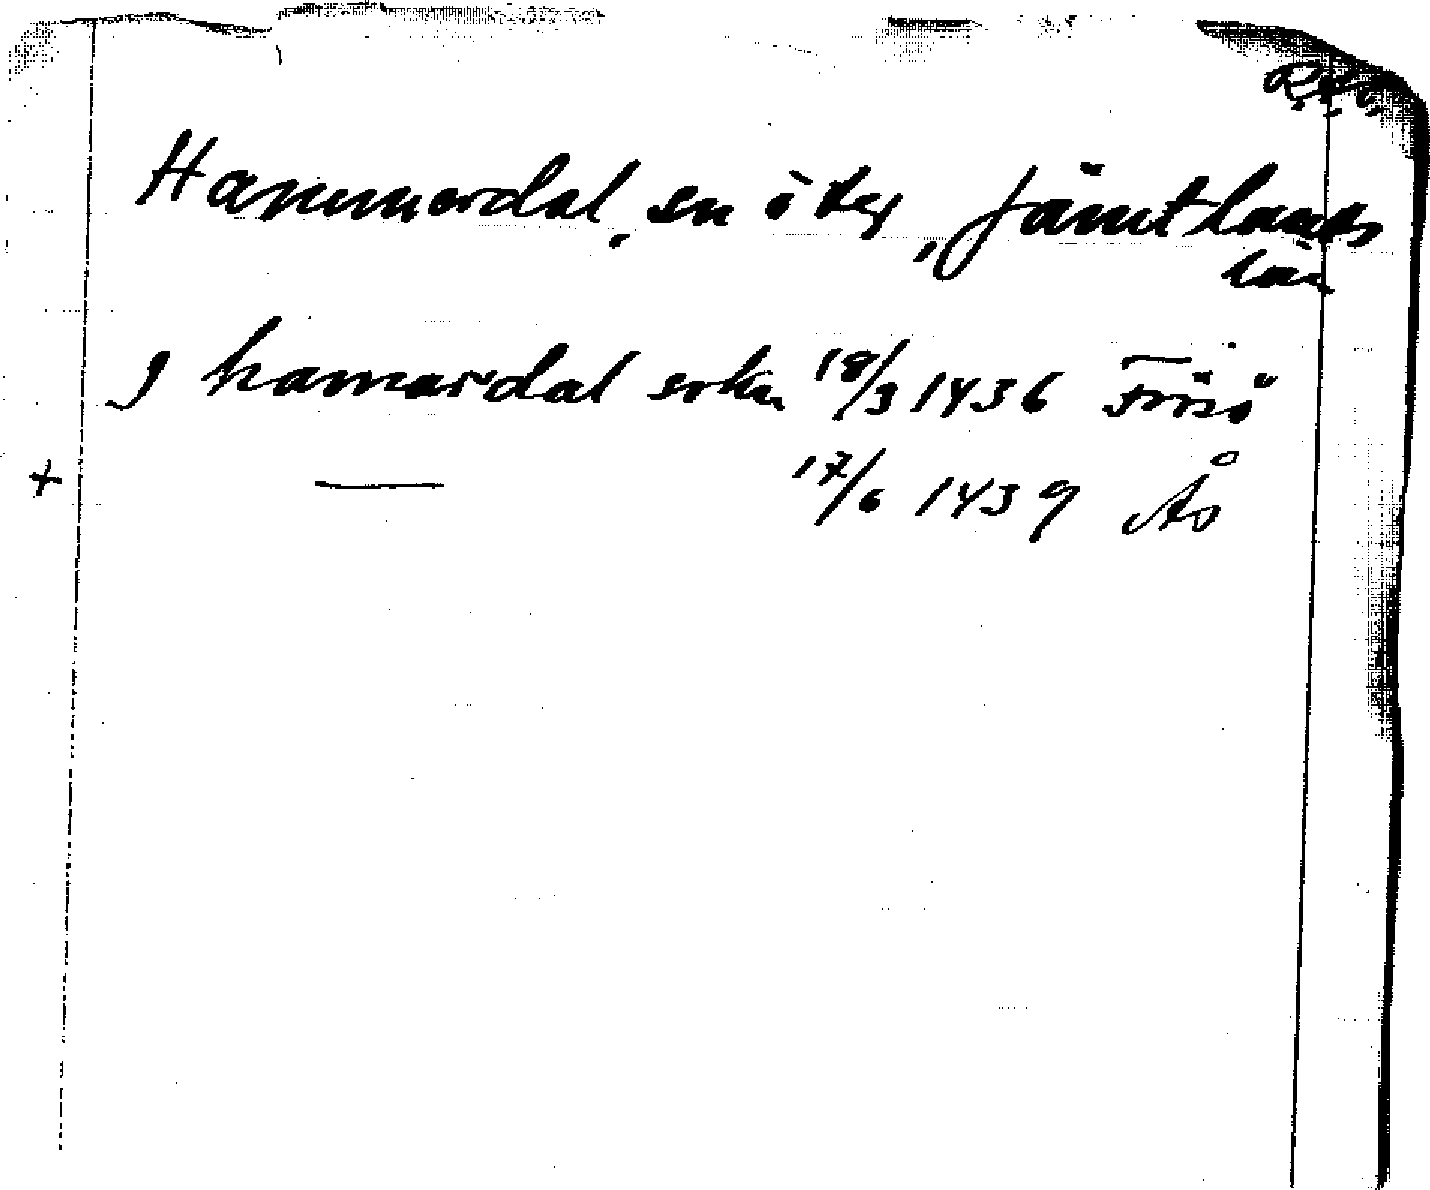 R.A.O.
Hammerdal, sn o tg, Jämtlands
län
J hamardal sokn 18/3 1436 Frösö
+ — 17/6 1439 Ås